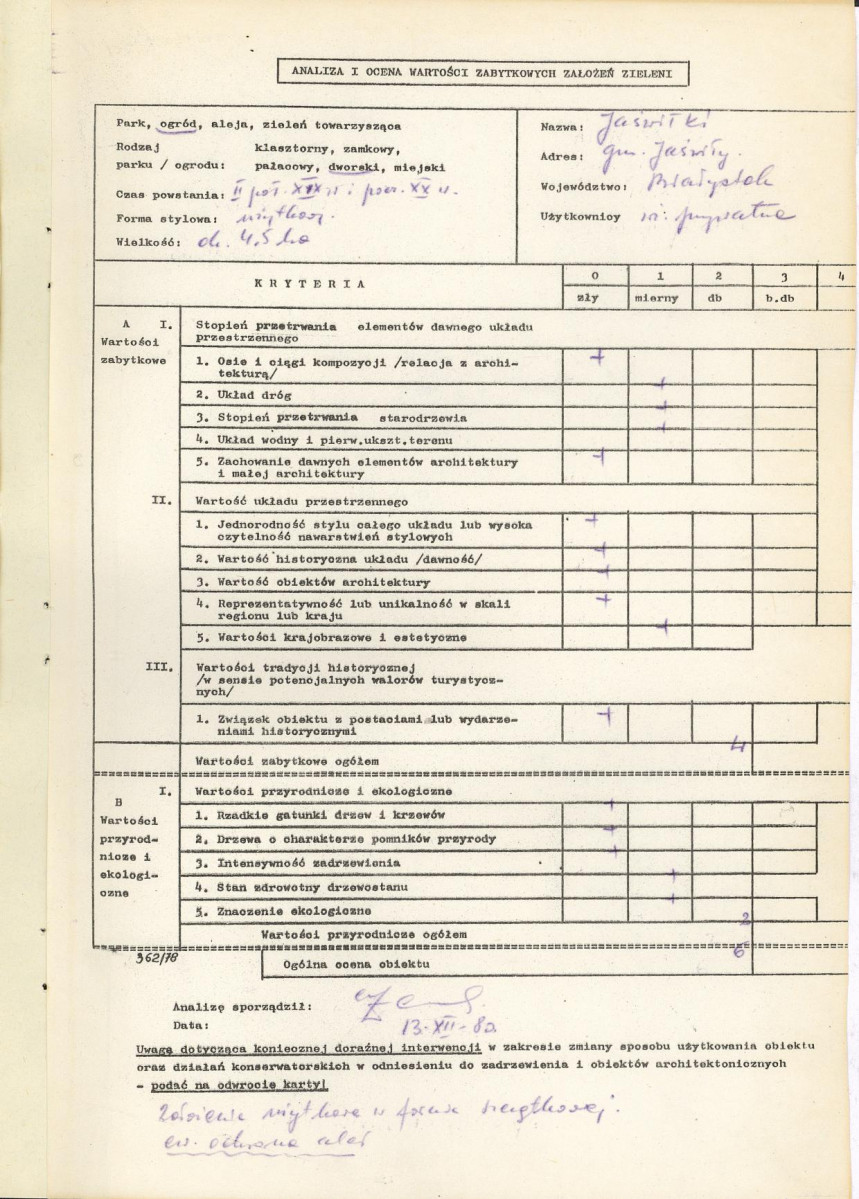 ANALIZA I OCENA WARTOŚCI ZABYTKOWYCH ZAŁOŻEŃ ZIELENI
Park, ogród, aleja, zieleń towarzysząca
Rodzaj klasztorny, zamkowy,
parku / ogrodu: pałacowy, dworski, miejski
Czas powstania: II poł. XIX w i pocz. XX w.
Forma stylowa: użytkowy.
Wielkość: ok. 4,5 ha
Nazwa: Jaświłki
Adres: gm. Jaświły.
Województwo: Białystok
Użytkownicy wł. prywatna
KRYTERIA
0 1 2 3 4
zły mierny db b.db
A I. Stopień przetrwania elementów dawnego układu
Wartości przestrzennego
zabytkowe
1. Osie i ciągi kompozycji /relacja z archi- +
tekturą/
2. Układ dróg +
3. Stopień przetrwania starodrzewia +
4. Układ wodny i pierw.ukszt.terenu +
5. Zachowanie dawnych elementów architektury +
i małej architektury
II. Wartość układu przestrzennego
1. Jednorodność stylu całego układu lub wysoka +
czytelność nawarstwień stylowych
2. Wartość historyczna układu /dawność/ +
3. Wartość obiektów architektury +
4. Reprezentatywność lub unikalność w skali +
regionu lub kraju
5. Wartości krajobrazowe i estetyczne +
III. Wartości tradycji historycznej
/w sensie potencjalnych walorów turystycz-
nych/
1. Związek obiektu z postaciami lub wydarze- +
niami historycznymi
Wartości zabytkowe ogółem 4
B I. Wartości przyrodnicze i ekologiczne
Wartości
przyrod-
nicze i
ekologi-
czne
1. Rzadkie gatunki drzew i krzewów +
2. Drzewa o charakterze pomników przyrody +
3. Intensywność zadrzewienia +
4. Stan zdrowotny drzewostanu +
5. Znaczenie ekologiczne +
Wartości przyrodnicze ogółem 2
362/78
Ogólna ocena obiektu 6
Analizę sporządził:
Data: 13-XII-80.
Uwagę dotycząca koniecznej doraźnej interwencji w zakresie zmiany sposobu użytkowania obiektu
oraz działań konserwatorskich w odniesieniu do zadrzewienia i obiektów architektonicznych
- podać na odwrocie karty!
użytkowe w formie szczątkowej.
ew. ochrona alei